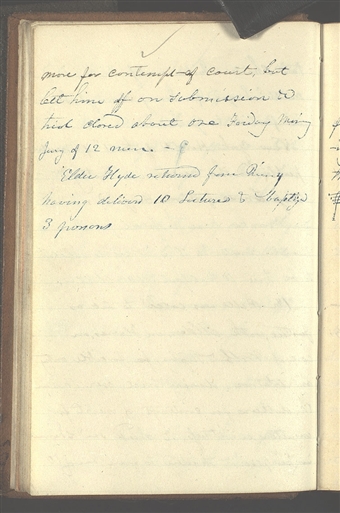 more for contempt of court, but
let him off on submission &
trial closed about one Friday morning
Jury of 12 men. -
Elder Hyde returned from Quincy
having delivered 10 Lectures & baptized
3 persons